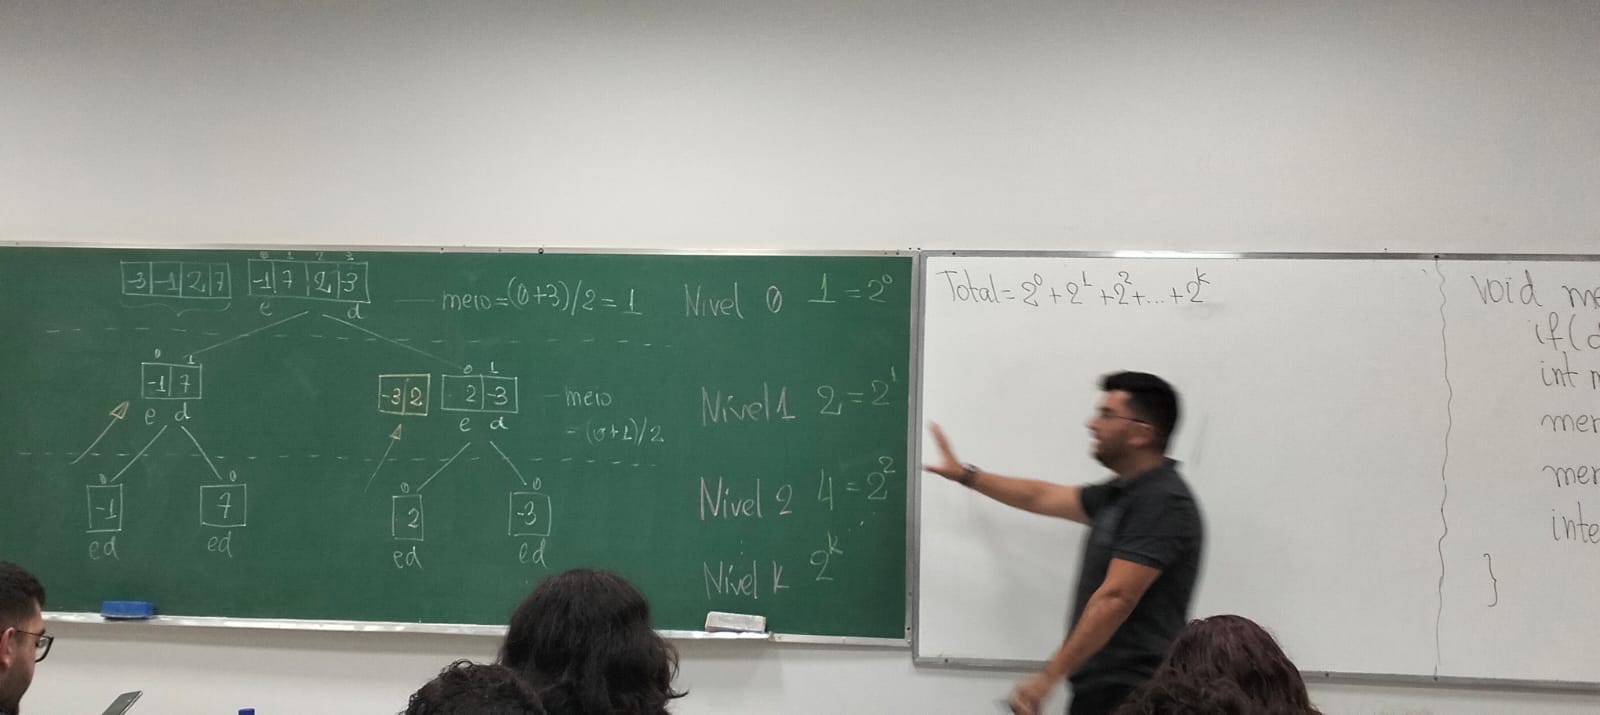 0 1 2 3
-3 -1 2 7 -1 7 2 -3
e d
meio=(0+3)/2=1
Nível 0 1=2⁰
0 1
-1 7
e d
-3 2
0 1
2 -3
e d
meio
=(0+1)/2
Nível 1 2=2¹
0 0 0 0
-1 7 2 -3
ed ed ed ed
Nível 2 4=2²
Nível k 2ᵏ
Total=2⁰+2¹+2²+...+2ᵏ
void me
if(d
int m
mer
mer
inte
}